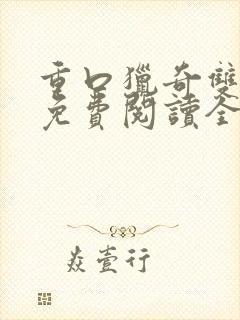 重口獵奇雙
免費閱讀全
焱壹行